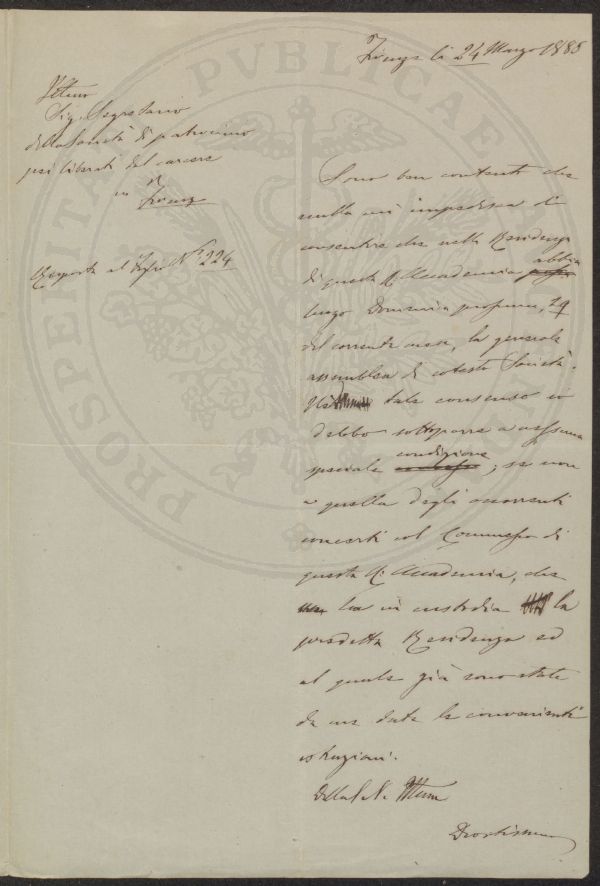 Firenze li 24 Marzo 1885
Illmo
Sig. Segretario
della Società di patrocinio
pei liberati dal carcere
in Firenze
Risposta al foglio N° 224
Sono ben contento che
nulla mi impedisca di
consentire che nella Residenza
di questa R. Accademia abbia
luogo Domenica prossima, 29
del corrente mese, la generale
assemblea di cotesta Società.
tale consenso io
debbo sottoporre a nessuna
speciale condizione; se non
a quella degli occorrenti
concerti col Commesso di
questa R. Accademia, che
ha in custodia la
predetta Residenza ed
al quale già sono state
da me date le convenienti
istruzioni.
Della S. V. Illma
Devotissimo
PROSPERITATI PVBLICAE